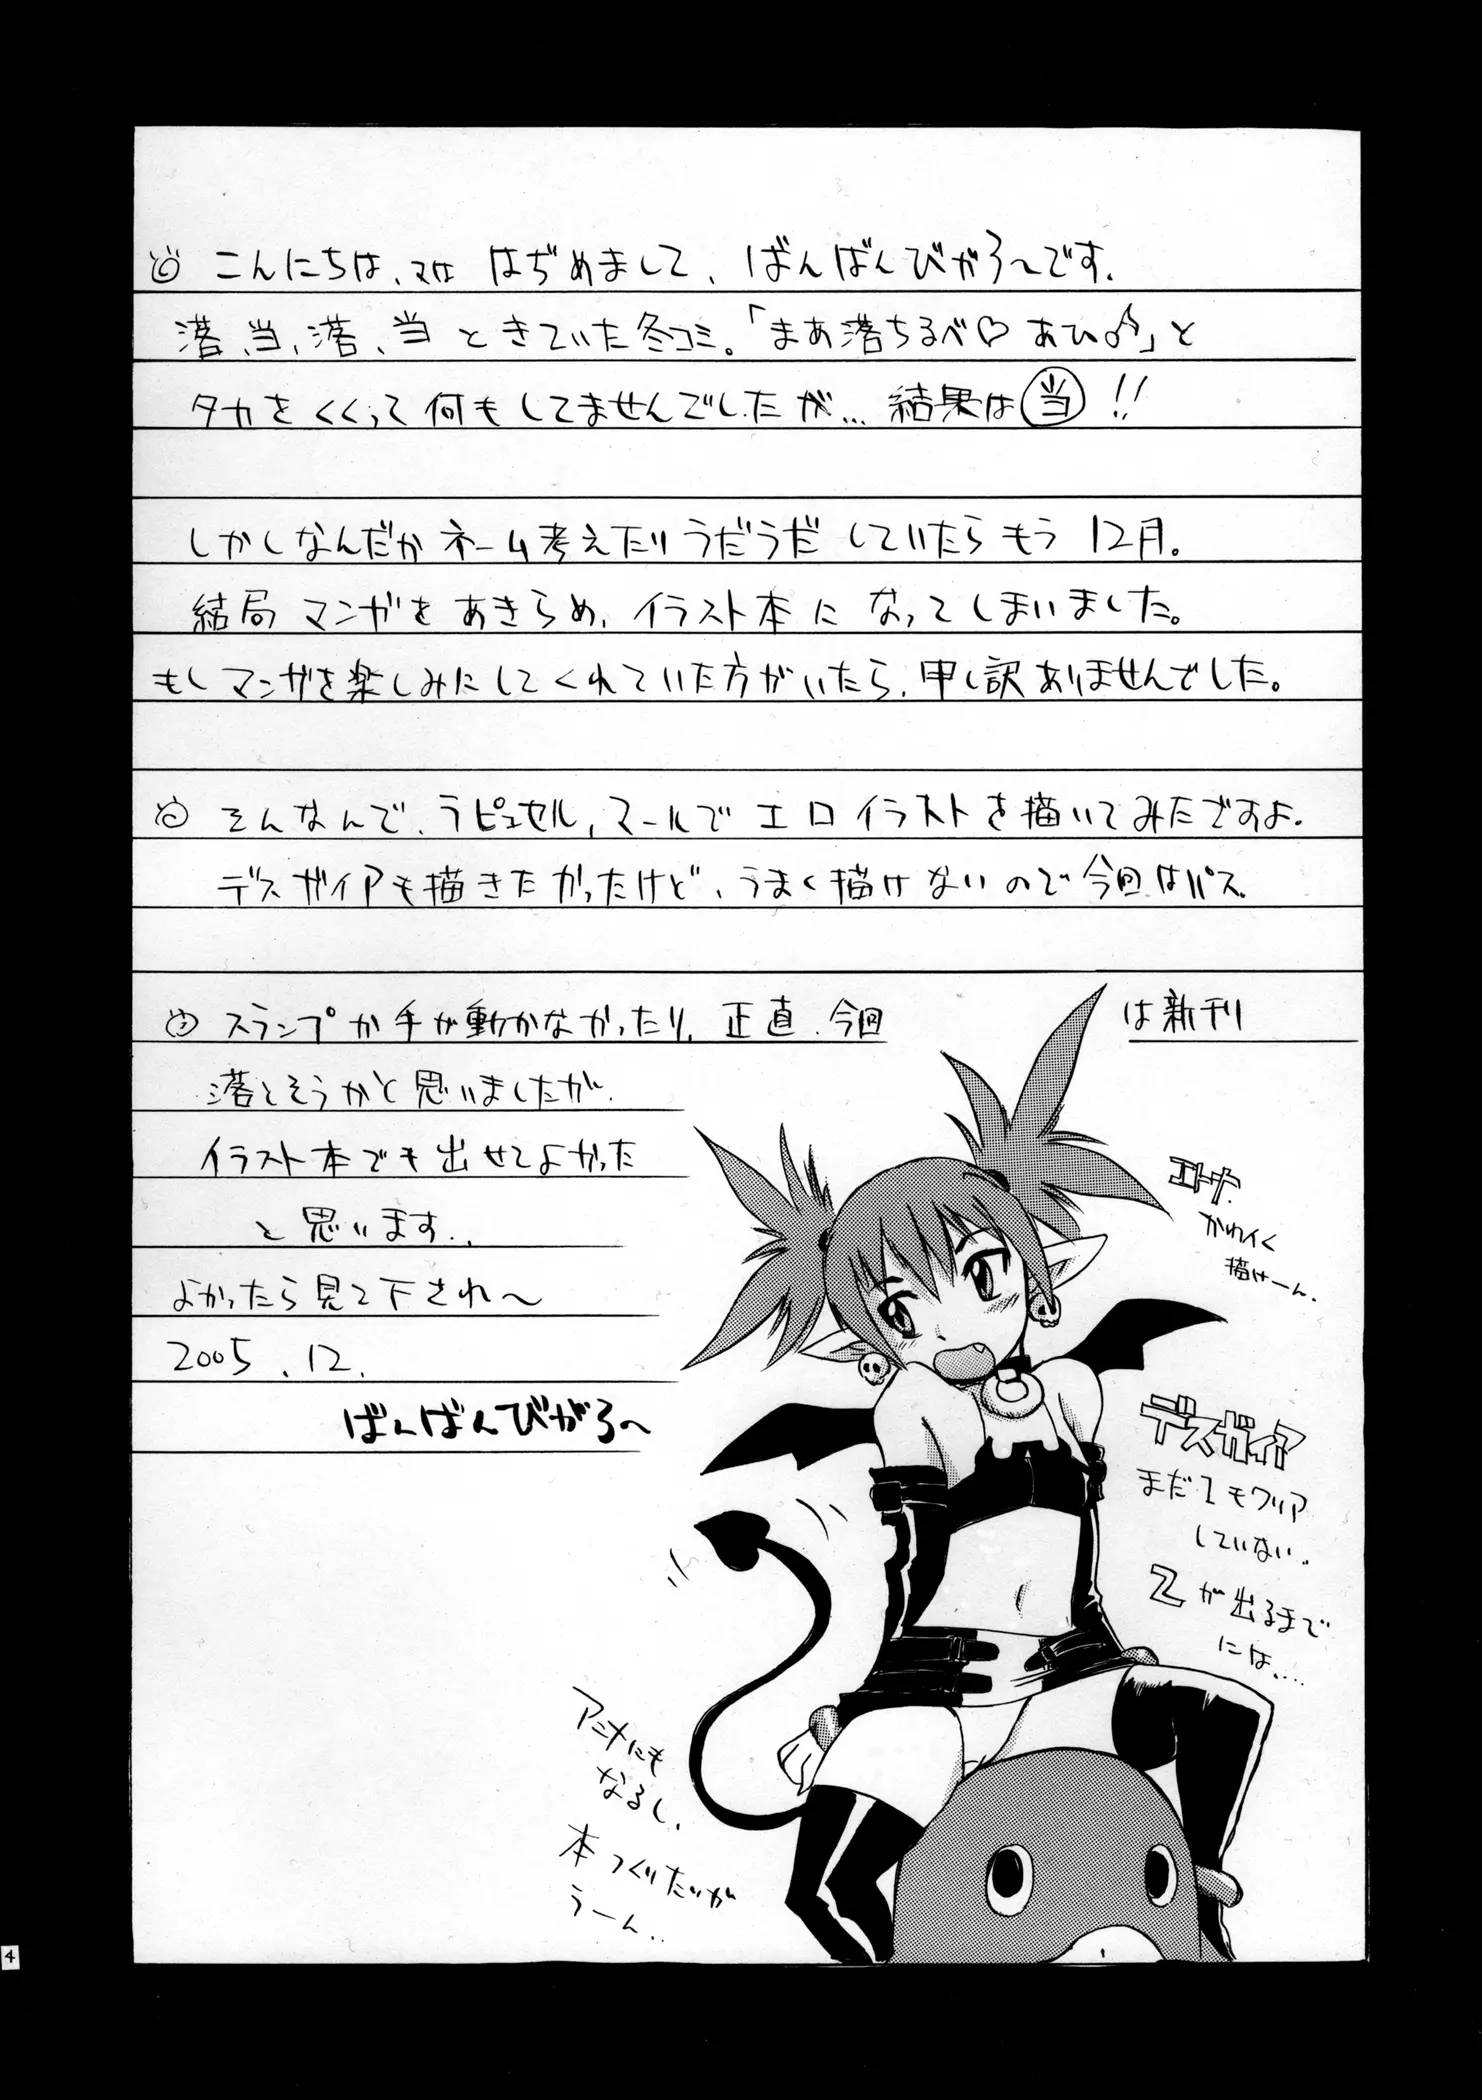 こんにちは、又は はぢめまして、ばんばんびがろ〜です。
落、当、落、当ときていた冬コミ。「まあ落ちるべ♡あひ♂」と
タカをくくって何もしてませんでしたが… 結果は当!!
しかしなんだかネーム考えたりうだうだしていたらもう12月。
結局マンガをあきらめ、イラスト本になってしまいました。
もしマンガを楽しみにしてくれていた方がいたら、申し訳ありませんでした。
そんなんで、ラピュセル、マールでエロイラストを描いてみたですよ。
デスガイアも描きたかったけど、うまく描けないので今回はパス
スランプか手が動かなかったり、正直、今回は新刊
落とそうかと思いましたが、
イラスト本でも出せてよかった
と思います..
よかったら見て下され〜
2005.12.
ばんばんびがろ〜
エトナ
かわイく
描けーん.
デスガイア
まだ1もクリア
していない..
2が出るまで
には....
アニメにも
なるし、
本つくりたいが
うーん..
4